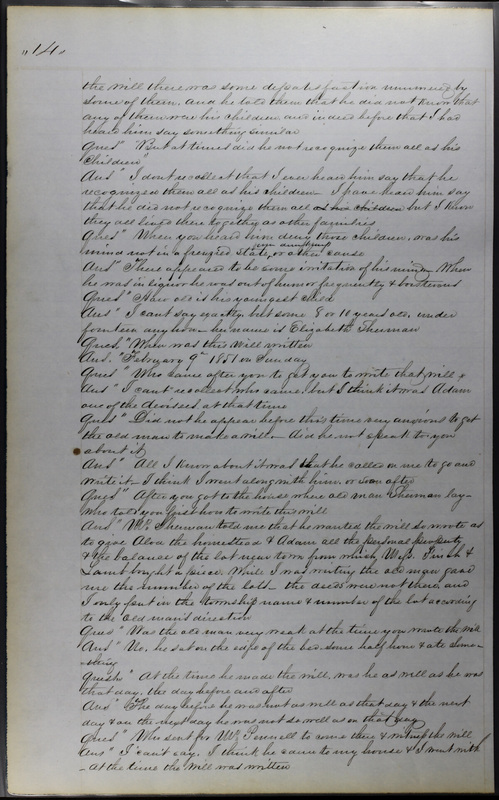 "14"
the will there was some disatisfaction mummured by
some of them. and he told them that he did not know that
any of them were his children and indeed before that I had
heard him say something similar
Ques" But at times did he not recognize them all as his
Children"
Ans" I dont recollect that I ever heard him say that he
recognized them all as his children – I have heard him say
that he did not recognize them all as his children but I know
they all lived there together as other families
Ques" When you heard him deny those children, was his
mind not in a frenzied state, or other cause
Ans" There appeared to be some irritation of his mind – When
he was in liquor he was out of humor frequently & boisterous
Ques" How old is his youngest child
Ans" I cant say exactly. but some 8 or 10 years old, under
fourteen any how – her name is Elizabeth Sherman
Ques. "When was this Will written
Ans. "February 9th 1851 on Sunday
Ques" Who came after you to get you to write that will &
Ans" I cant recollect who came. but I think it was Adam
one of the devisees. at that time
Ques" Did not he appear before this time very anxious to get
the old man to make a will – did he not speak to you
about it
Ans" All I know about it was that he called on me to go and
write it – I think I went along with him. or soon after
Ques" After you got to the house where old man Sherman lay –
who told you first how to write the will
Ans" Wm Sherman told me that he wanted the will so wrote as
to give Alva the homestead & Adam all the personal property
& the balance of the lot near town from which Wess. Finch &
Lamb bought a piece. While I was writing the old man gave
me the number of the lots – the deeds were not there, and
I only put in the township name & number of the lot according
to the old man's direction
Ques" Was the old man very weak at the time you wrote the will
Ans" No, he sat on the edge of the bed some half hour & ate some-
-thing
Quest" At the time he made the will, was he as well as he was
that day, the day before and after
Ans" The day before he was not as well as that day & the next
day & on the next day he was not so well as on that day
Ques" Who sent for Wm Pennell to come there & witness the will
Ans" I can't say. I think he came to my house & I went with
– At the time the will was written